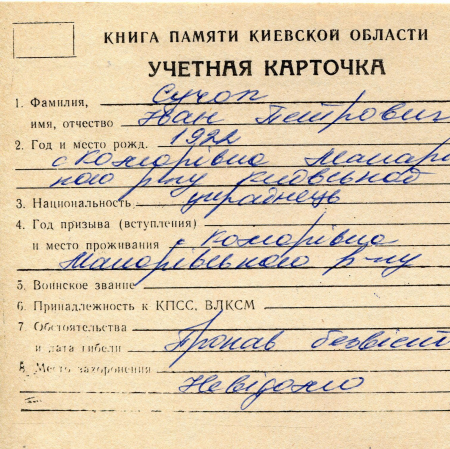 КНИГА ПАМЯТИ КИЕВСКОЙ ОБЛАСТИ
УЧЕТНАЯ КАРТОЧКА
1. Фамилия, Сучок
имя, отчество Іван Петрович
2. Год и место рожд. 1922
с Комарівка Макарі
кого р-ну київської
3. Национальность українець
4. Год призыва (вступления)
и место проживания с Комарівка
Макарівського р-ну
5. Воинское звание
6. Принадлежность к КПСС, ВЛКСМ
7. Обстоятельства
и дата гибели Пропав безвіст
8. Место захоронения
Невідомо